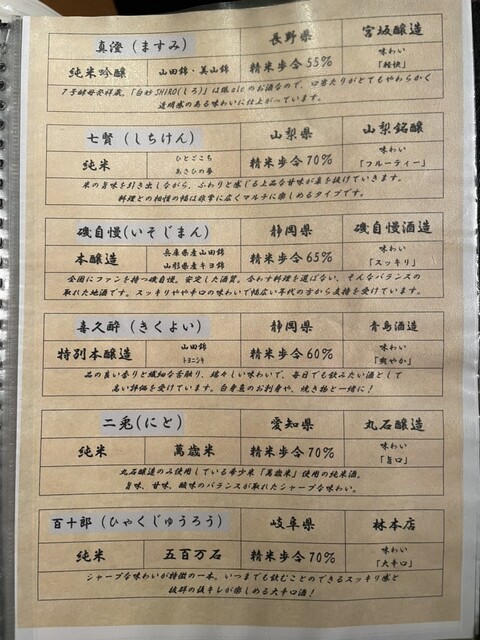 真澄（ますみ） 長野県 宮坂醸造
純米吟醸 山田錦・美山錦 精米歩合55% 味わい「軽快」
7号酵母発祥蔵。「白妙SHIRO(しろ)」は低alcのお酒なので、口当たりがとてもやわらかく
透明感のある味わいに仕上がっています。
七賢（しちけん） 山梨県 山梨銘醸
純米 ひとごこち あさひの夢 精米歩合70% 味わい「フルーティー」
米の旨味を引き出しながら、ふわりと感じる上品な甘味が鼻を抜けていきます。
料理との相性の幅は非常に広くマルチに楽しめるタイプです。
磯自慢(いそじまん) 静岡県 磯自慢酒造
本醸造 兵庫県産山田錦 山形県産キヨ錦 精米歩合65% 味わい「スッキリ」
全国にファンを持つ磯自慢。安定した酒質。合わす料理を選ばない、そんなバランスの
取れた地酒です。スッキリやや辛口の味わいで幅広い年代の方から支持を受けています。
喜久酔（きくよい） 静岡県 青島酒造
特別本醸造 山田錦 トヨニシキ 精米歩合60% 味わい「爽やか」
品の良い香りと繊細な舌触り、瑞々しい味わいで、毎日でも飲みたい酒として
高い評価を受けています。白身魚のお刺身や、焼き物と一緒に！
二兎(にと) 愛知県 丸石醸造
純米 萬歳米 精米歩合70% 味わい「旨口」
丸石醸造のみ使用している希少米「萬歳米」使用の純米酒。
旨味、甘味、酸味のバランスが取れたシャープな味わい。
百十郎（ひゃくじゅうろう） 岐阜県 林本店
純米 五百万石 精米歩合70% 味わい「大辛口」
シャープな味わいが特徴の一本。いつまでも飲むことのできるスッキリ感と
抜群の後キレが楽しめる大辛口酒！